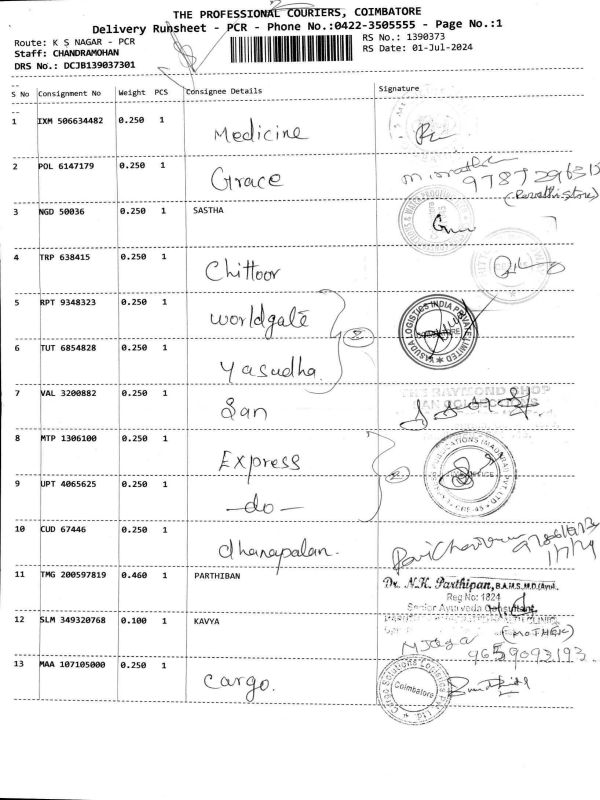 THE PROFESSIONAL COURIERS, COIMBATORE
Delivery Runsheet - PCR - Phone No.:0422-3505555 - Page No.:1
Route: K S NAGAR - PCR
Staff: CHANDRAMOHAN
DRS No.: DCJB139037301
RS No.: 1390373
RS Date: 01-Jul-2024
S No Consignment No Weight PCS Consignee Details Signature
1 IXM 506634482 0.250 1 Medicine
2 POL 6147179 0.250 1 Grace
3 NGD 50036 0.250 1 SASTHA
4 TRP 638415 0.250 1 Chittoor
5 RPT 9348323 0.250 1 Worldgate
6 TUT 6854828 0.250 1 Yasudha.
YASUDA LOGISTICS INDIA PRIVATE LIMITED
7 VAL 3200882 0.250 1 San
THE RAYMOND SHOP
8 MTP 1306100 0.250 1 Express
9 UPT 4065625 0.250 1 -do-
10 CUD 67446 0.250 1 dhanapalan.
1/7/24
11 TMG 200597819 0.460 1 PARTHIBAN
Dr. N.K. Parthipan, B.A.M.S.,M.D.(Ayu).
Reg No: 1824
Senior Ayurveda Consultant
12 SLM 349320768 0.100 1 KAVYA
(MOTHER)
9659093193.
13 MAA 107105000 0.250 1 Cargo.
Coimbatore